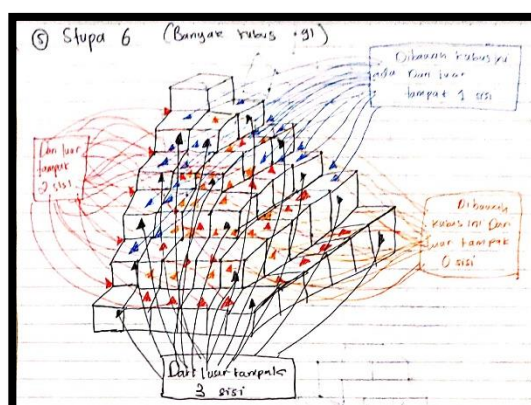 ⑤ Stupa 6 (Banyak kubus = 91)
Dibawah kubus ini
ada luar
tampak 1 sisi
Dari luar
tampak
2 sisi
Dibawah
kubus ini Dari
luar tampak
0 sisi
Dari luar tampak
3 sisi